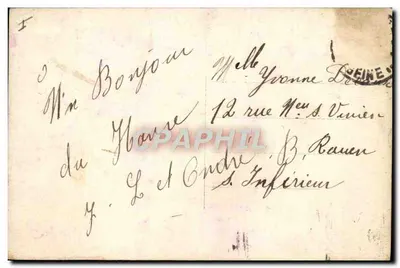 I
Un Bonjour
du Havre
L et Andre
Melle Yvonne
12 rue Neu s. Vivien
B, Rouen
s. Inférieur
SEINE
CPAPHIL